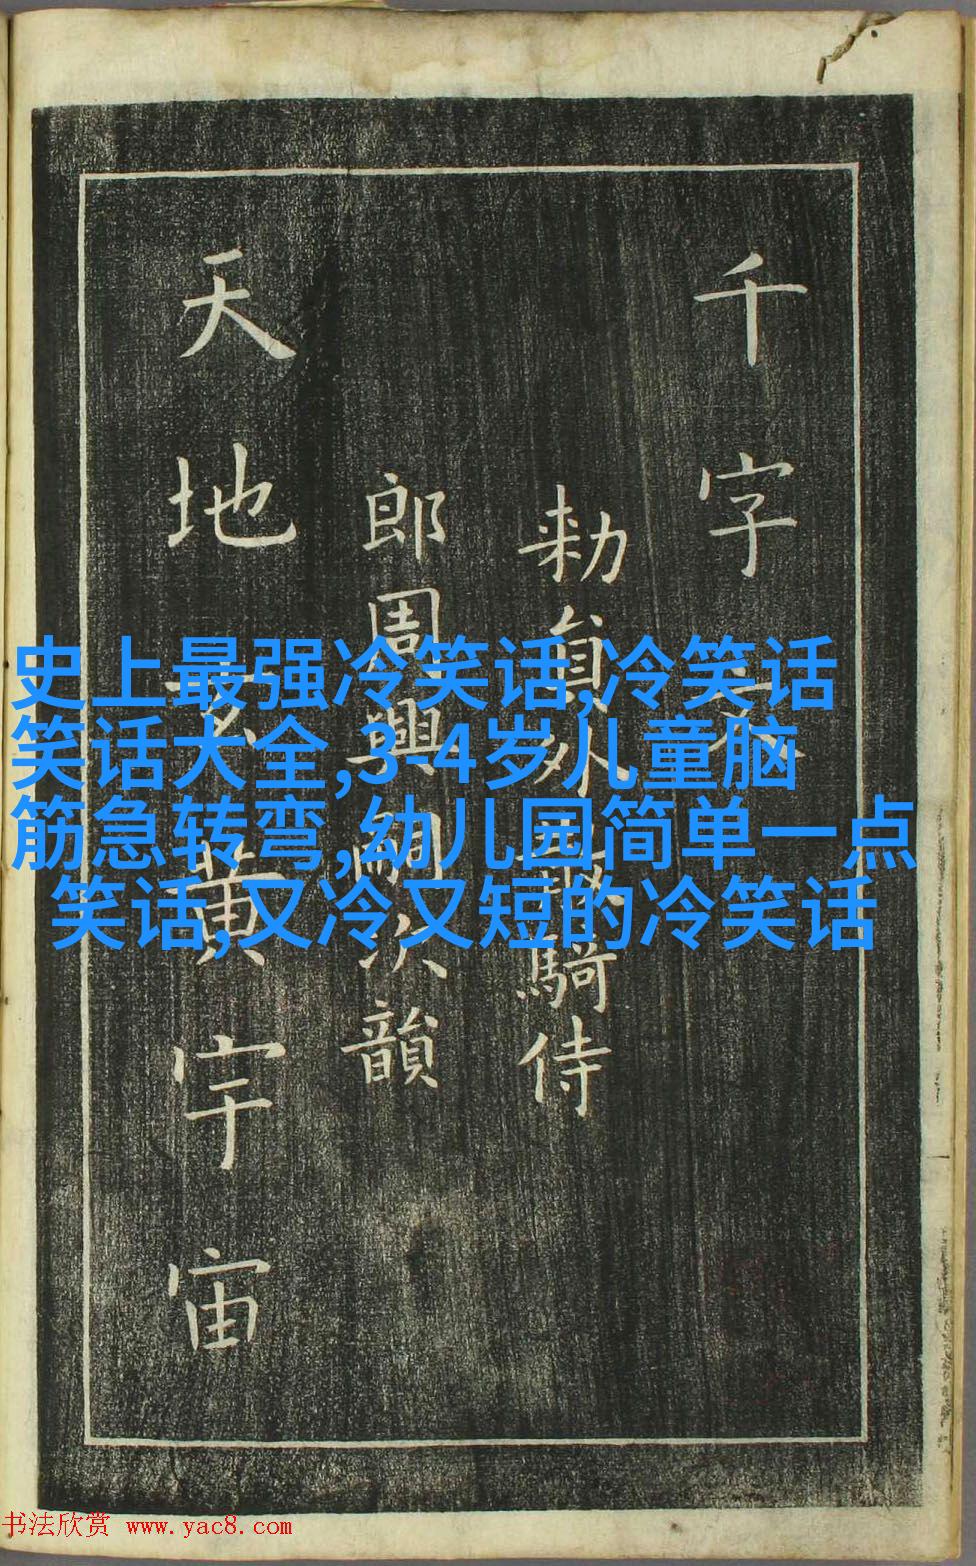 千字文
勅員外散騎侍
郎周興嗣次韻
天地玄黃宇宙
史上最强冷笑话,冷笑话
笑话大全,3-4岁儿童脑
筋急转弯,幼儿园简单一点
笑话,又冷又短的冷笑话
书法欣赏 www.yac8.com